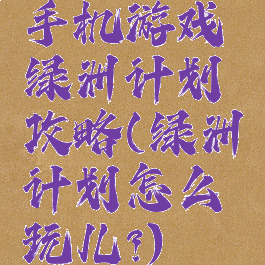 手机游戏
绿洲计划
攻略(绿洲
计划怎么
玩儿?)